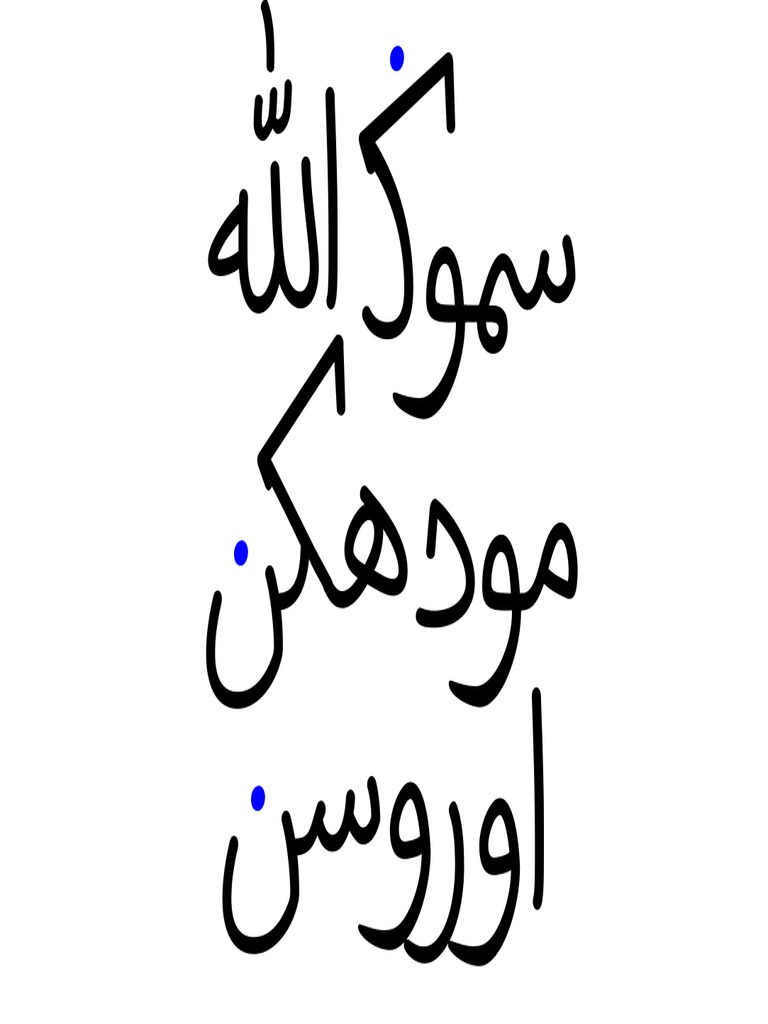 سموݢ الله
مودهكن
اوروسن